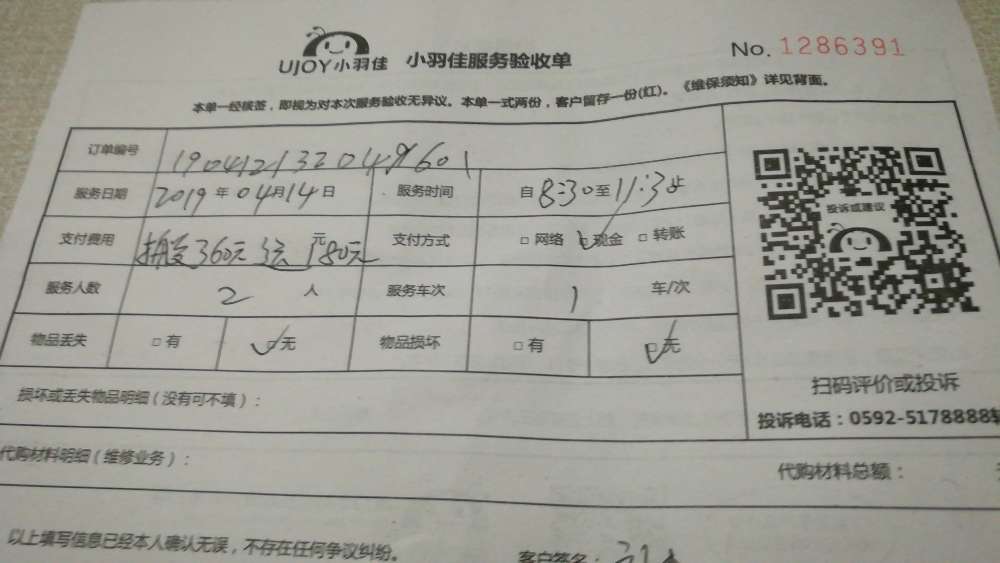 UJOY小羽佳 小羽佳服务验收单 No. 1286391
本单一经核签，即视为对本次服务验收无异议。本单一式两份，客户留存一份(红)。《维保须知》详见背面。
订单编号 190412132049601
服务日期 2019年04月14日 服务时间 自8:30至11:3
支付费用 搬360元 180元 元 支付方式 □网络 □现金 □转账
服务人数 2 人 服务车次 1 车/次
物品丢失 □有 □无 物品损坏 □有 □无
投诉或建议
扫码评价或投诉
投诉电话：0592-5178888转
损坏或丢失物品明细（没有可不填）：
代购材料明细（维修业务）： 代购材料总额：
以上填写信息已经本人确认无误，不存在任何争议纠纷。
客户签名：